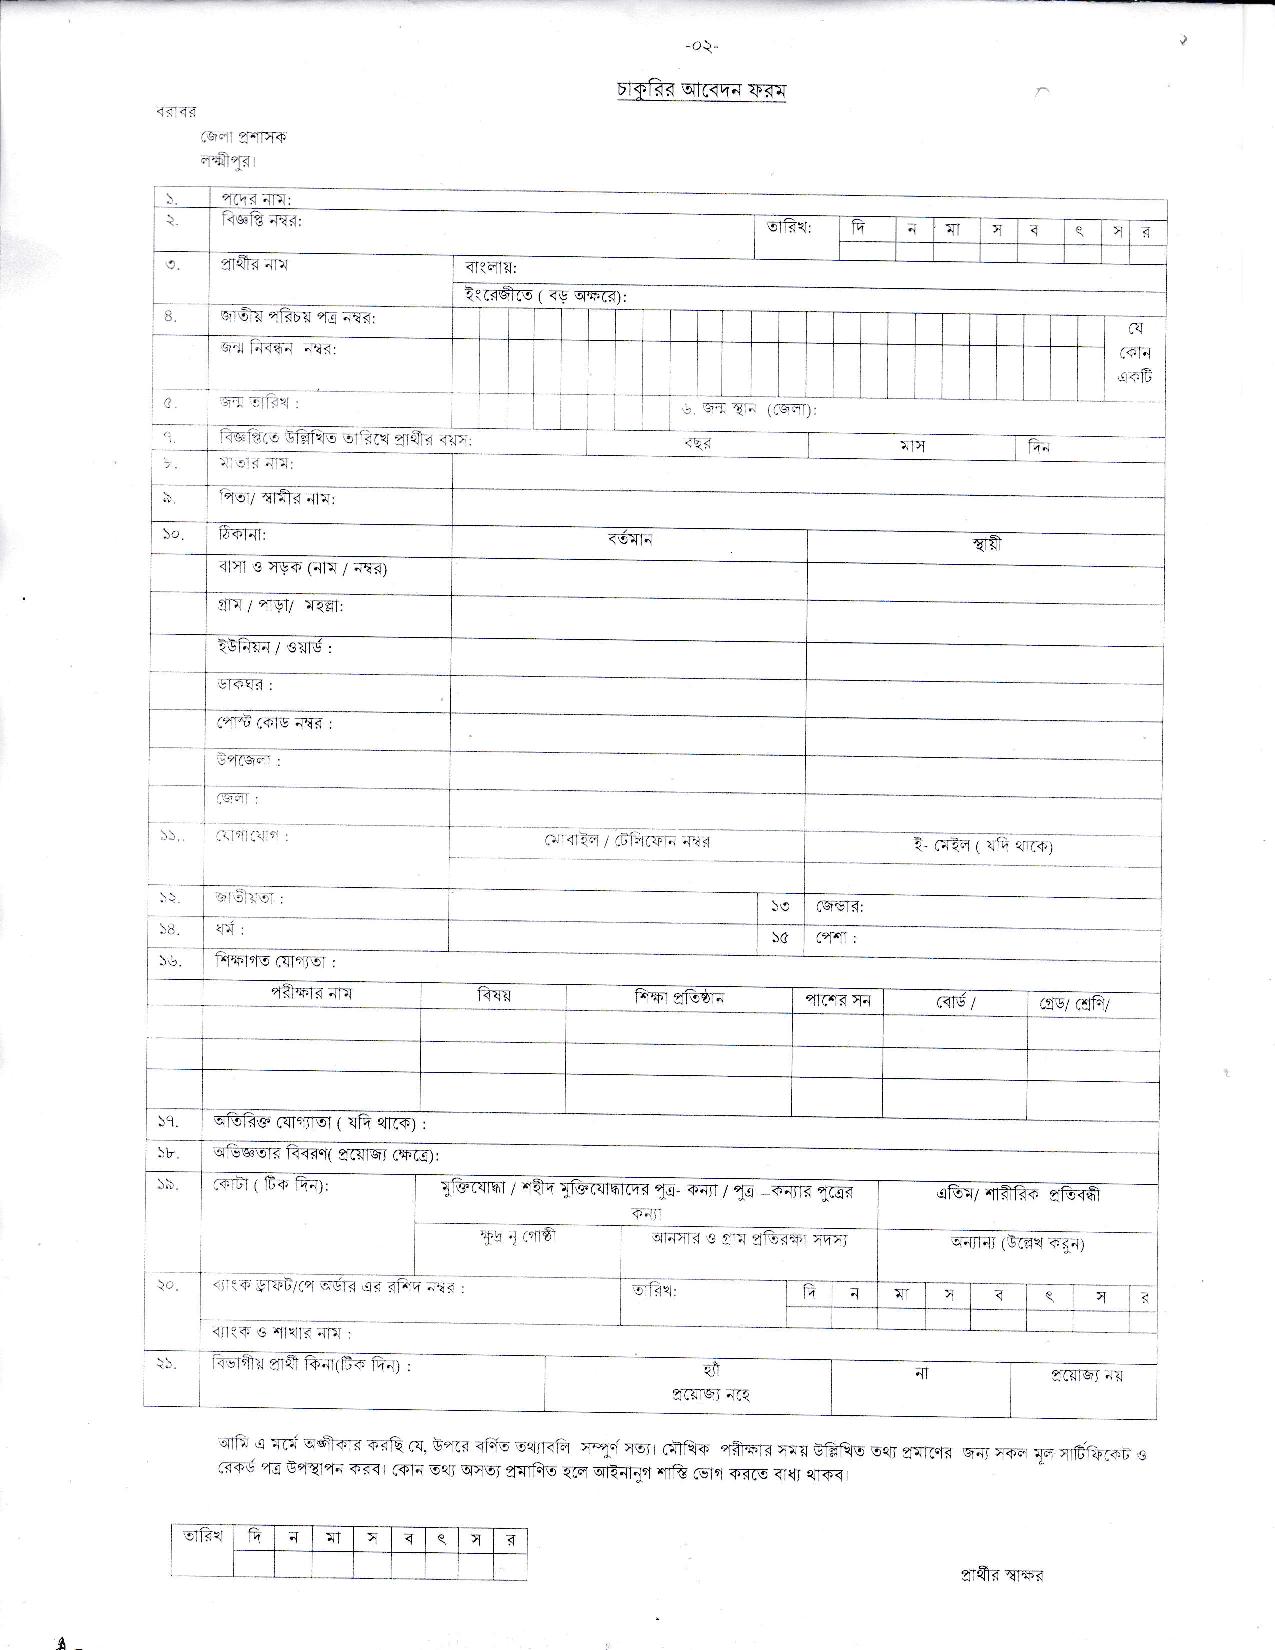 -০২-
চাকুরির আবেদন ফরম
বরাবর
জেলা প্রশাসক
লক্ষ্মীপুর।
১. পদের নাম:
২. বিজ্ঞপ্তি নম্বর: তারিখ: দি ন মা স ব ৎ স র
৩. প্রার্থীর নাম বাংলায়:
ইংরেজীতে ( বড় অক্ষরে):
৪. জাতীয় পরিচয় পত্র নম্বর: যে
জন্ম নিবন্ধন নম্বর: কোন
একটি
৫. জন্ম তারিখ : ৬. জন্ম স্থান (জেলা):
৭. বিজ্ঞপ্তিতে উল্লিখিত তারিখে প্রার্থীর বয়স: বছর মাস দিন
৮. মাতার নাম:
৯. পিতা/ স্বামীর নাম:
১০. ঠিকানা: বর্তমান স্থায়ী
বাসা ও সড়ক (নাম / নম্বর)
গ্রাম / পাড়া/ মহল্লা:
ইউনিয়ন / ওয়ার্ড :
ডাকঘর :
পোস্ট কোড নম্বর :
উপজেলা :
জেলা :
১১. যোগাযোগ : মোবাইল / টেলিফোন নম্বর ই- মেইল ( যদি থাকে)
১২. জাতীয়তা : ১৩ জেন্ডার:
১৪. ধর্ম : ১৫ পেশা :
১৬. শিক্ষাগত যোগ্যতা :
পরীক্ষার নাম বিষয় শিক্ষা প্রতিষ্ঠান পাশের সন বোর্ড / গ্রেড/ শ্রেণি/
১৭. অতিরিক্ত যোগ্যাতা ( যদি থাকে) :
১৮. অভিজ্ঞতার বিবরণ( প্রয়োজ্য ক্ষেত্রে):
১৯. কোটা ( টিক দিন): মুক্তিযোদ্ধা / শহীদ মুক্তিযোদ্ধাদের পুত্র- কন্যা / পুত্র –কন্যার পুত্রের এতিম/ শারীরিক প্রতিবন্ধী
কন্যা
ক্ষুদ্র নৃ গোষ্ঠী আনসার ও গ্রাম প্রতিরক্ষা সদস্য অন্যান্য (উল্লেখ করুন)
২০. ব্যাংক ড্রাফট/পে অর্ডার এর রশিদ নম্বর : তারিখ: দি ন মা স ব ৎ স র
ব্যাংক ও শাখার নাম :
২১. বিভাগীয় প্রার্থী কিনা(টিক দিন) : হ্যাঁ না প্রয়োজ্য নয়
প্রয়োজ্য নহে
আমি এ মর্মে অঙ্গীকার করছি যে, উপরে বর্ণিত তথ্যাবলি সম্পুর্ণ সত্য। মৌখিক পরীক্ষার সময় উল্লিখিত তথ্য প্রমাণের জন্য সকল মূল সার্টিফিকেট ও
রেকর্ড পত্র উপস্থাপন করব। কোন তথ্য অসত্য প্রমাণিত হলে আইনানুগ শাস্তি ভোগ করতে বাধ্য থাকব।
তারিখ দি ন মা স ব ৎ স র
প্রার্থীর স্বাক্ষর